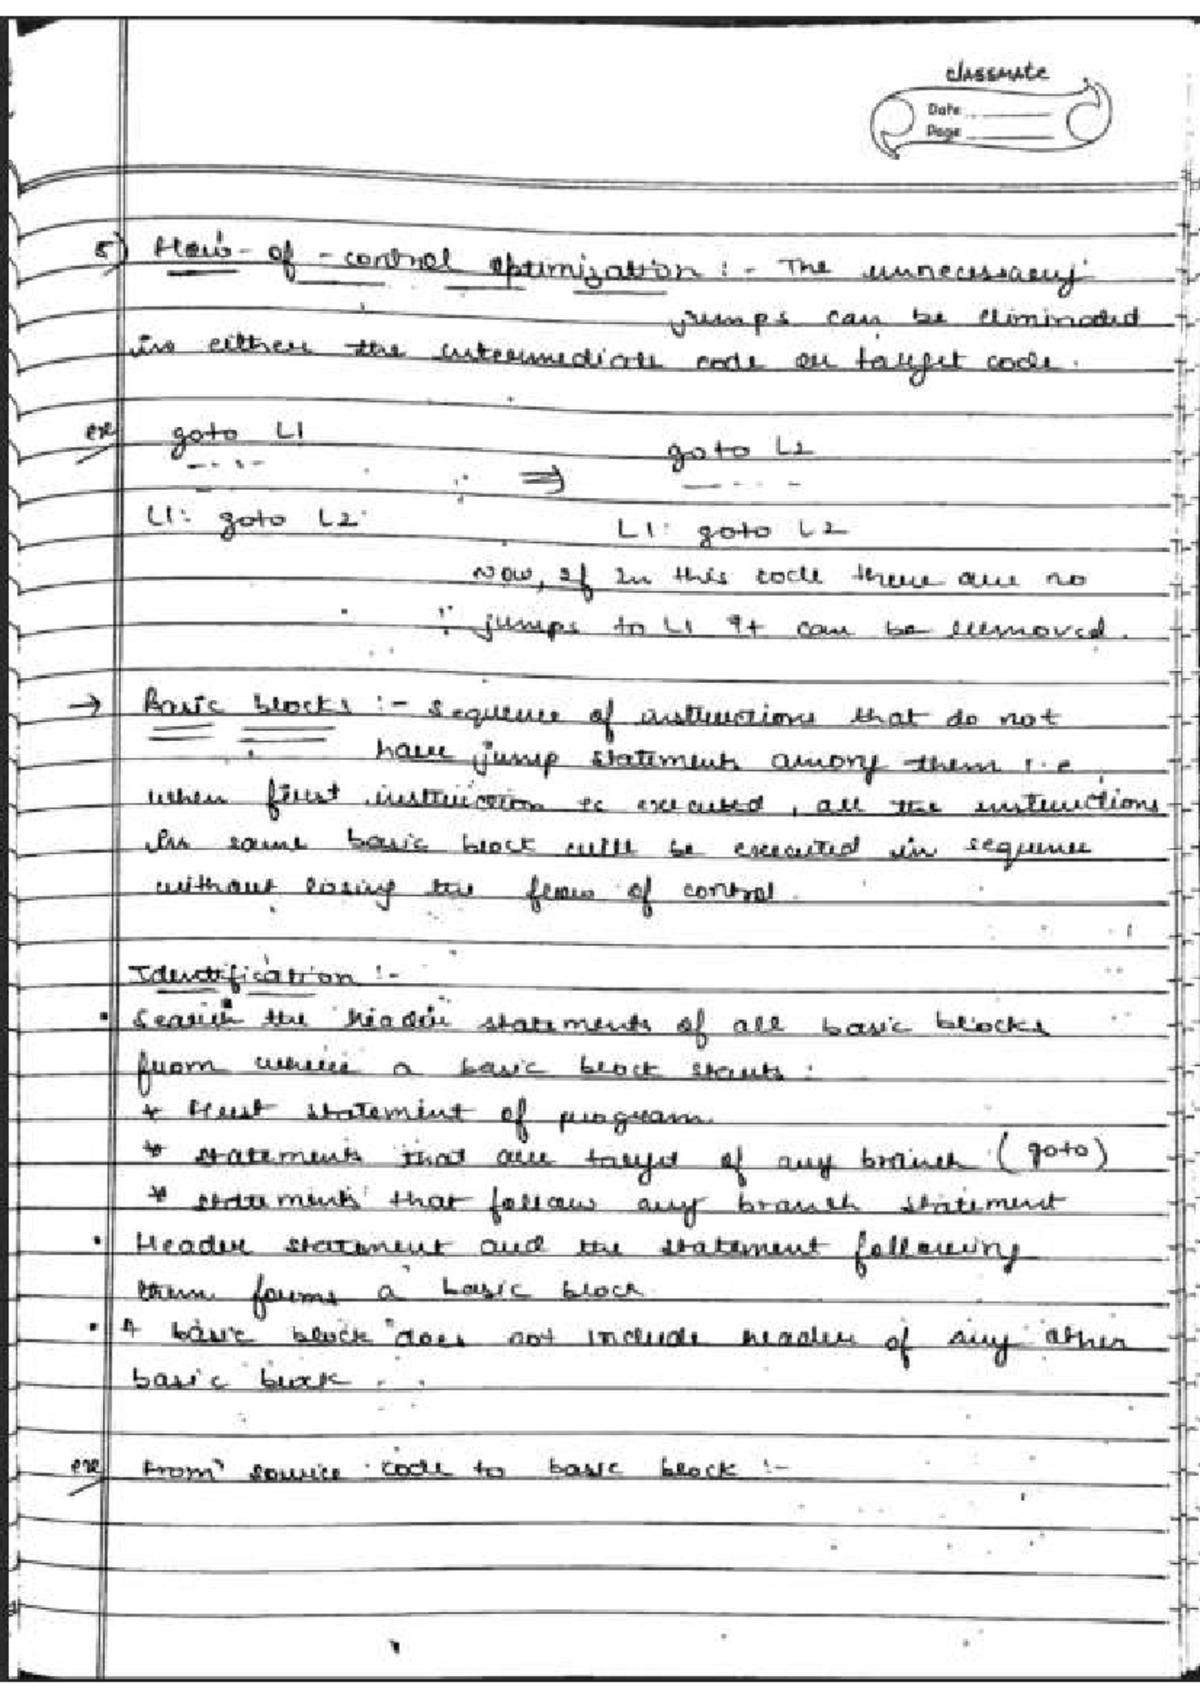 classmate
Date
Page
5) Flow-of-control optimization :- The unnecessary
jumps can be eliminated
in either the intermediate code or target code.
ex goto L1
goto L2
⇒
L1: goto L2
L1: goto L2
Now, if in this code there are no
jumps to L1 it can be removed.
→ Basic blocks :- Sequence of instructions that do not
have jump statements among them i.e
when first instruction is executed, all the instructions
in same basic block will be executed in sequence
without losing the flow of control.
Identification :-
• Search the header statements of all basic blocks
from where a basic block starts :
* First statement of program.
* statements that are target of any branch (goto)
* statements that follow any branch statement
• Header statement and the statement following
them forms a basic block
• A basic block does not include header of any other
basic block.
ex From source code to basic block :-